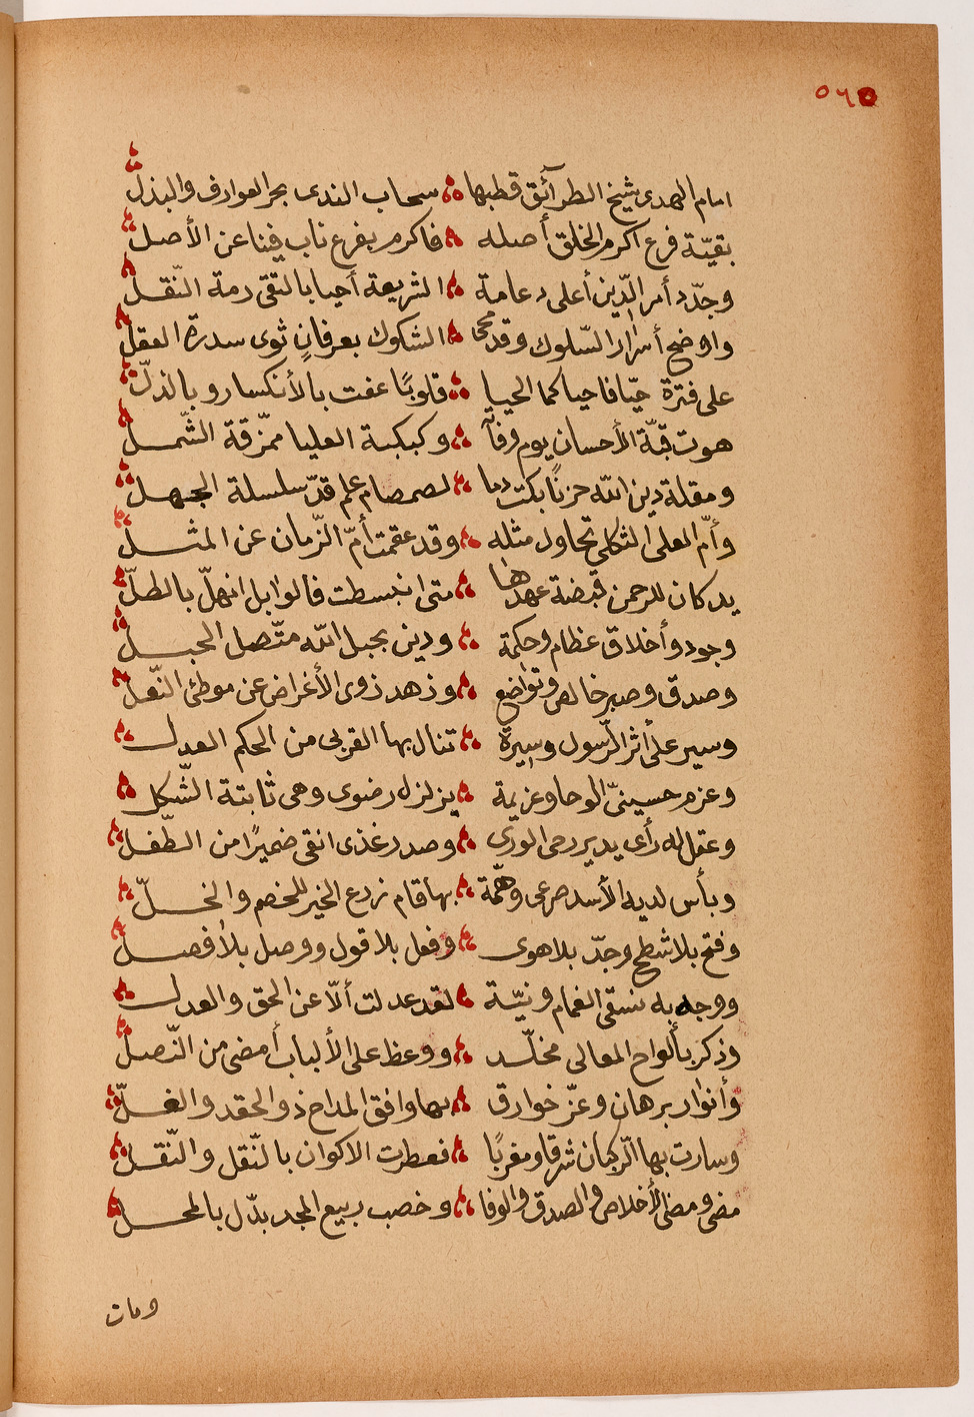 ٥٦٥
امام الهدى شيخ الطرآئق قطبها سحاب الندى بحر العوارف والبذل
بقيّة فرع اكرم الخلق أصله فاكرم بفرع ناب فينا عن الأصل
وجدّد أمر الدّين أعلى دعامة الشريعة أحيا بالتقى رمة النّقل
واوضح أسرار السّلوك وقد محى الشكوك بعرفانٍ ثوى سدرة العقل
على فترة حيّا فاحيا كما الحيا قلوبًا عفت بالأنكسار وبالذلّ
هوت قبّة الأحسان يوم وفآ وكبكبة العليا ممزّقة الشّمل
ومقلة دين الله حزنًا بكت دما لصمصام علم قدّ سلسلة الجهل
وأمّ العلى الثكلى تحاول مثله وقد عقمت أمّ الزّمان عن المثل
يد كان للرحمن قبضة عهدها متى انبسطت فالوابل انهلّ بالطلّ
وجود وأخلاق عظام وحكمة ودين بحبل الله متّصل الحبل
وصدق وصبر خالص وتواضع وزهد زوى الأغراض عن موطئ النّعل
وسير على أثر الرّسول وسيرة تنال بها القربى من الحكم العدل
وعزم حسينيّ الوحا وعزيمة يزلزل رضوى وهى ثابتة الشّكل
وعقل له رأى يدير رحى الورى وصدر غذى انقى ضميرًا من الطّفل
وبأس لديه الأسد صرعى وهمّة بها قام زرع الخير للخصم والخلّ
وفتح بلا شطح وجدّ بلا هوى وفعل بلا قول ووصل بلا فصل
ووجه به نسقى الغمام ونيّة لقد عدلت ألّا عن الحق والعدل
وذكر بألواح المعالى مخلّد ووعظ على الألباب أمضى من النّصل
وأنوار برهان وعزّ خوارق بها وافق المداح ذو الحقد والغلّ
وسارت بها الرّكبان شرقا ومغربًا فعطرت الاكوان بالنّقل والنّقل
مضى ومضى الأخلاص والصدق والوفا وخصب ربيع المجد بدّل بالمحل
ومات